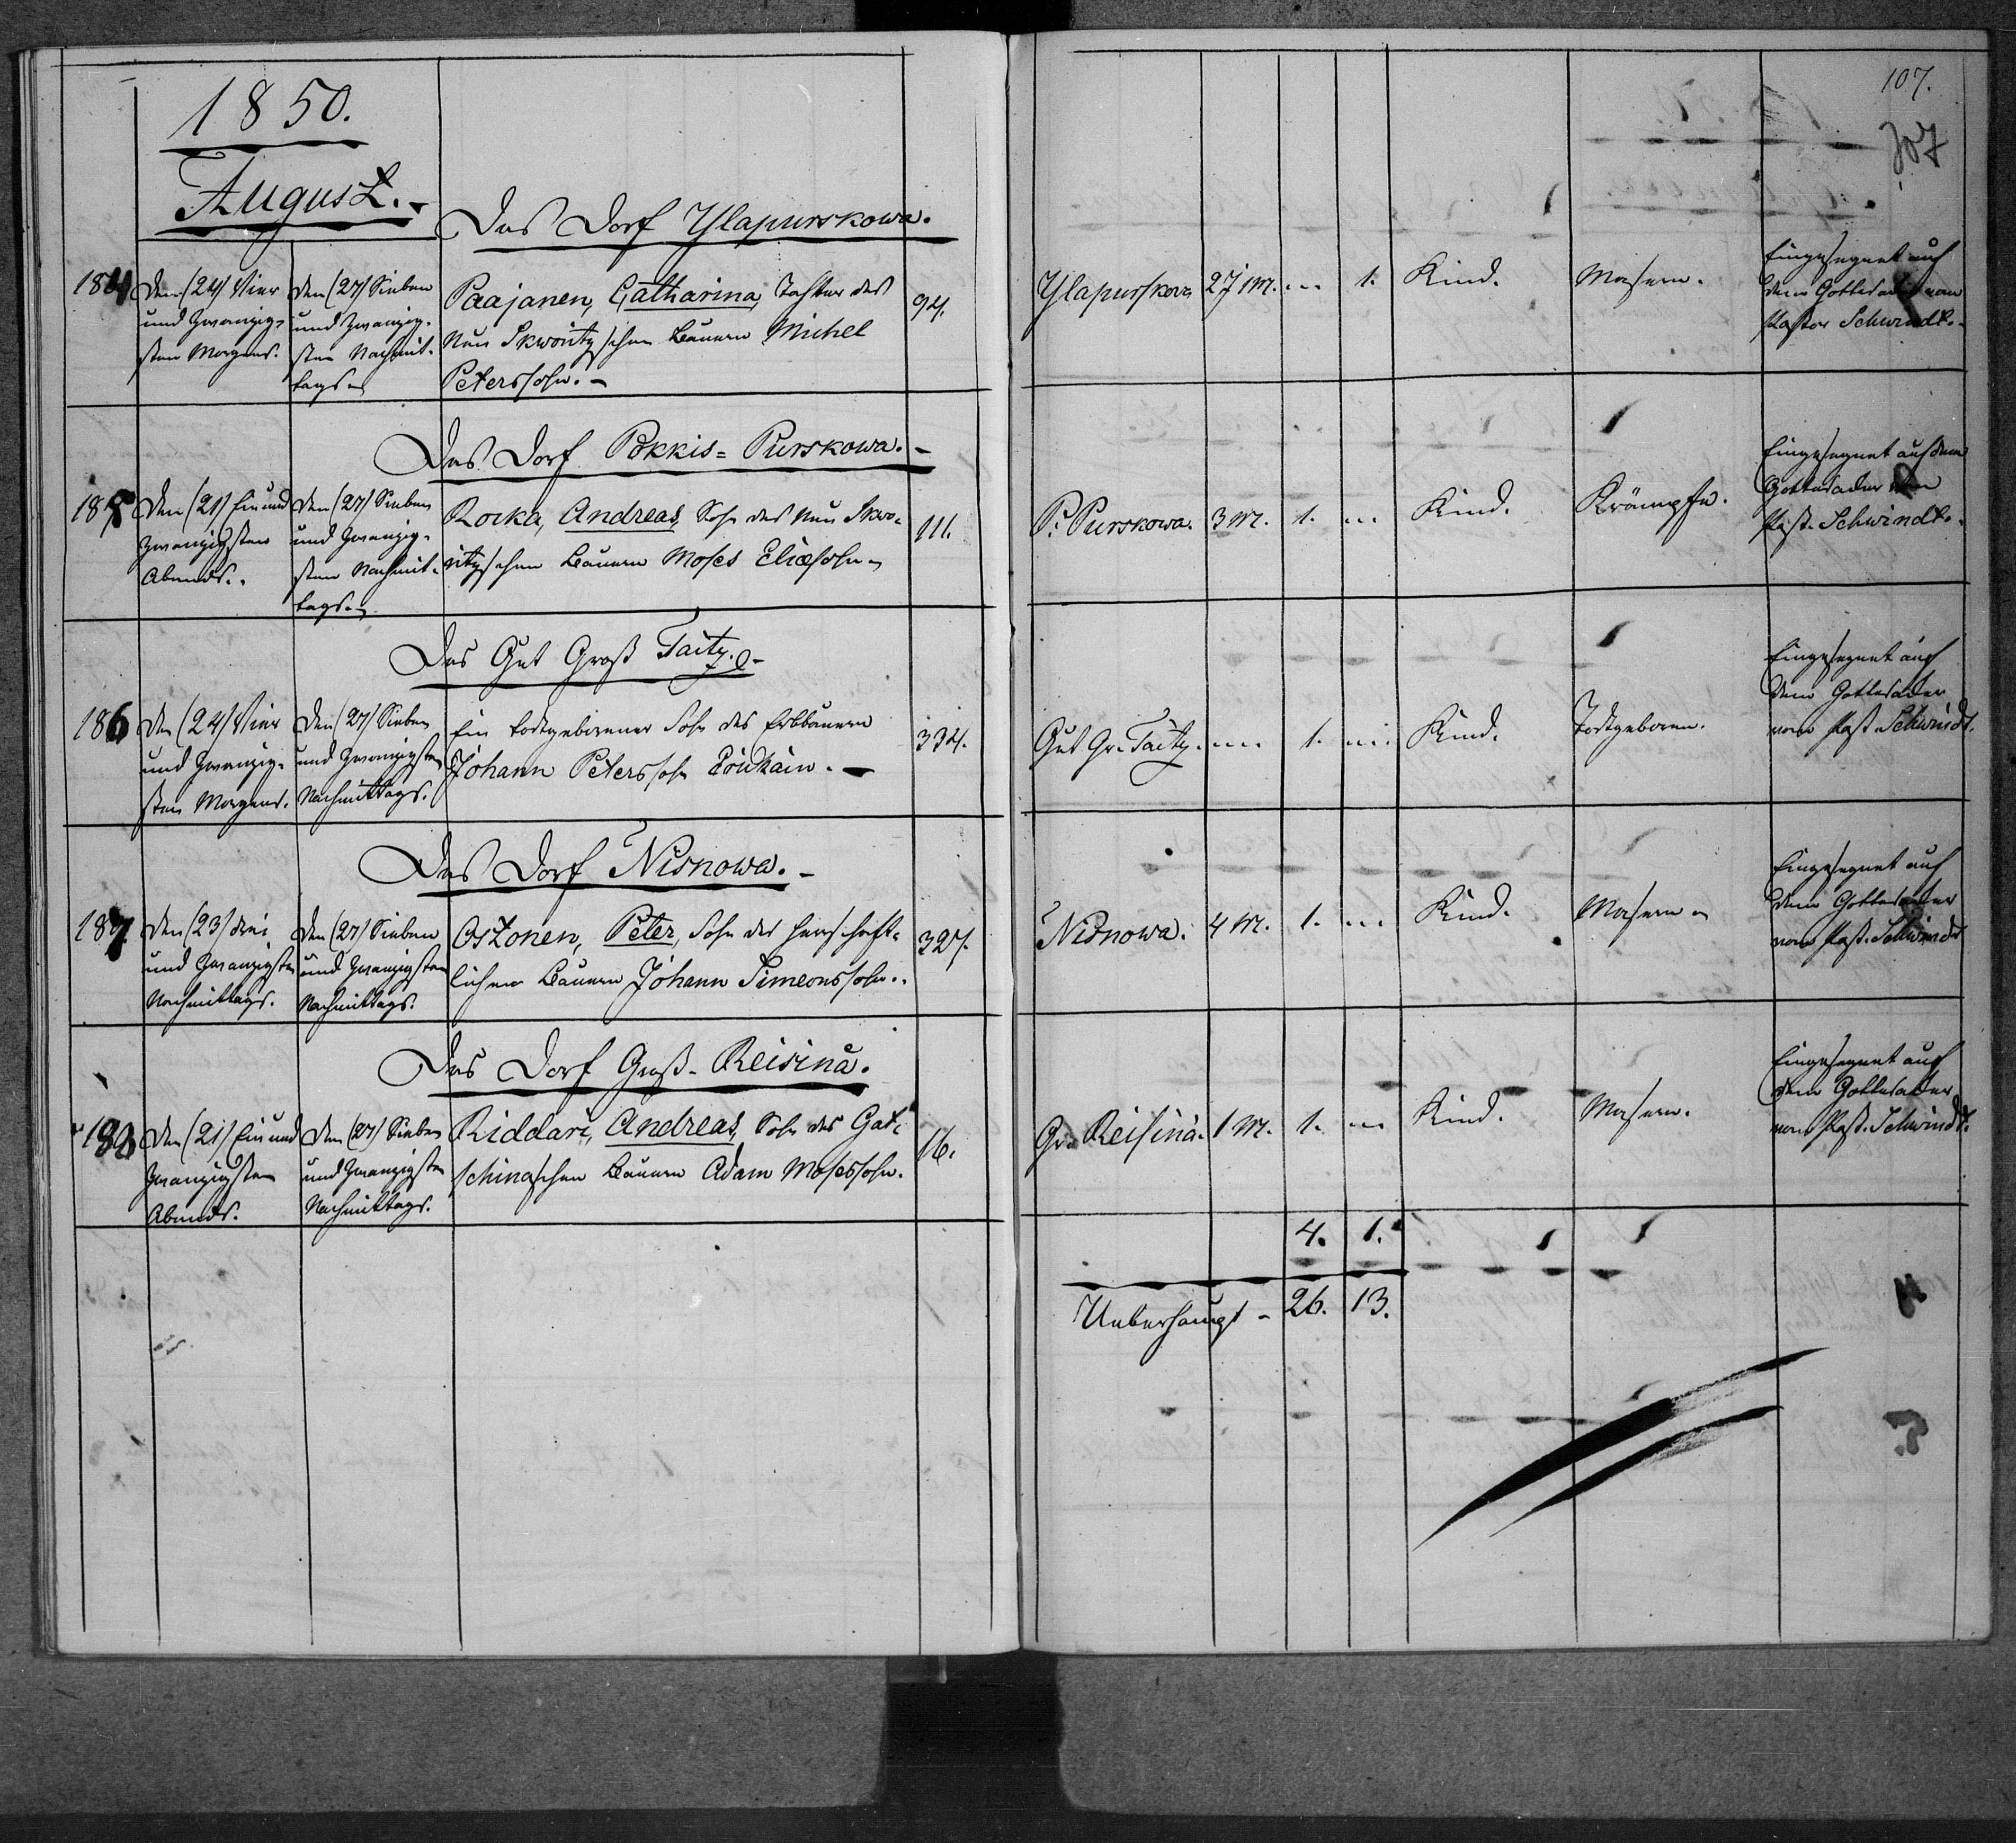 1850.
August.
Das Dorf Ylapurskowa.
184
Den (24) Vier
und Zwanzig-
sten Morgens.
Den (27) Sieben
und Zwanzig-
sten Nachmit-
tags
Paajanen, Catharina, Tochter des
Neu Skworitzschen Bauern Michel
Peterssohn.
94.
Das Dorf Pokkis-Purskowa.
185
Den (21) Ein und
Zwanzigsten
Abends.
Den (27) Sieben
und Zwanzig-
sten Nachmit-
tags.
Rocka, Andreas, Sohn des Neu Skwo-
ritzschen Bauern Moses Eliassohn
111.
Das Gut Groß Taitz.
186
Den (24) Vier
und Zwanzig-
sten Morgens.
Den (27) Sieben
und Zwanzigsten
Nachmittags.
Ein todtgeborener Sohn des Erbbauern
Johann Peterssohn
334.
Das Dorf Nisnowa.
187.
Den (23) drei
und Zwanzigsten
Nachmittags.
Den (27) Sieben
und Zwanzigsten
Nachmittags.
Ostonen, Peter, Sohn des herrschaft-
lichen Bauern Johann Simeonssohn.
327.
Das Dorf Groß-Reisinä.
188
Den (21) Ein und
Zwanzigsten
Abends.
Den (27) Sieben
und Zwanzigsten
Nachmittags.
Riddari, Andreas, Sohn des Gat-
schinaschen Bauern Adam Mosessohn.
16.
107.
107
Ylapurskowa 2 J 1 M. 1. Kind. Masern.
Eingesegnet auf
dem Gottesacker von
Pastor Schwindt.
P. Purskowa. 3 M. 1. Kind. Krämpfe.
Eingesegnet auf dem
Gottesacker von
Past. Schwindt.
Gut Gr. Taitz. 1. Kind. Todtgeboren.
Eingesegnet auf
dem Gottesacker
vom Past. Schwindt.
Nisnowa. 4 M. 1. Kind. Masern
Eingesegnet auf
dem Gottesacker
vom Past. Schwindt
Gr. Reisinä. 1 M. 1. Kind. Masern.
Eingesegnet auf
dem Gottesacker
vom Past. Schwindt.
4. 1.
Ueberhaupt - 26. 13.